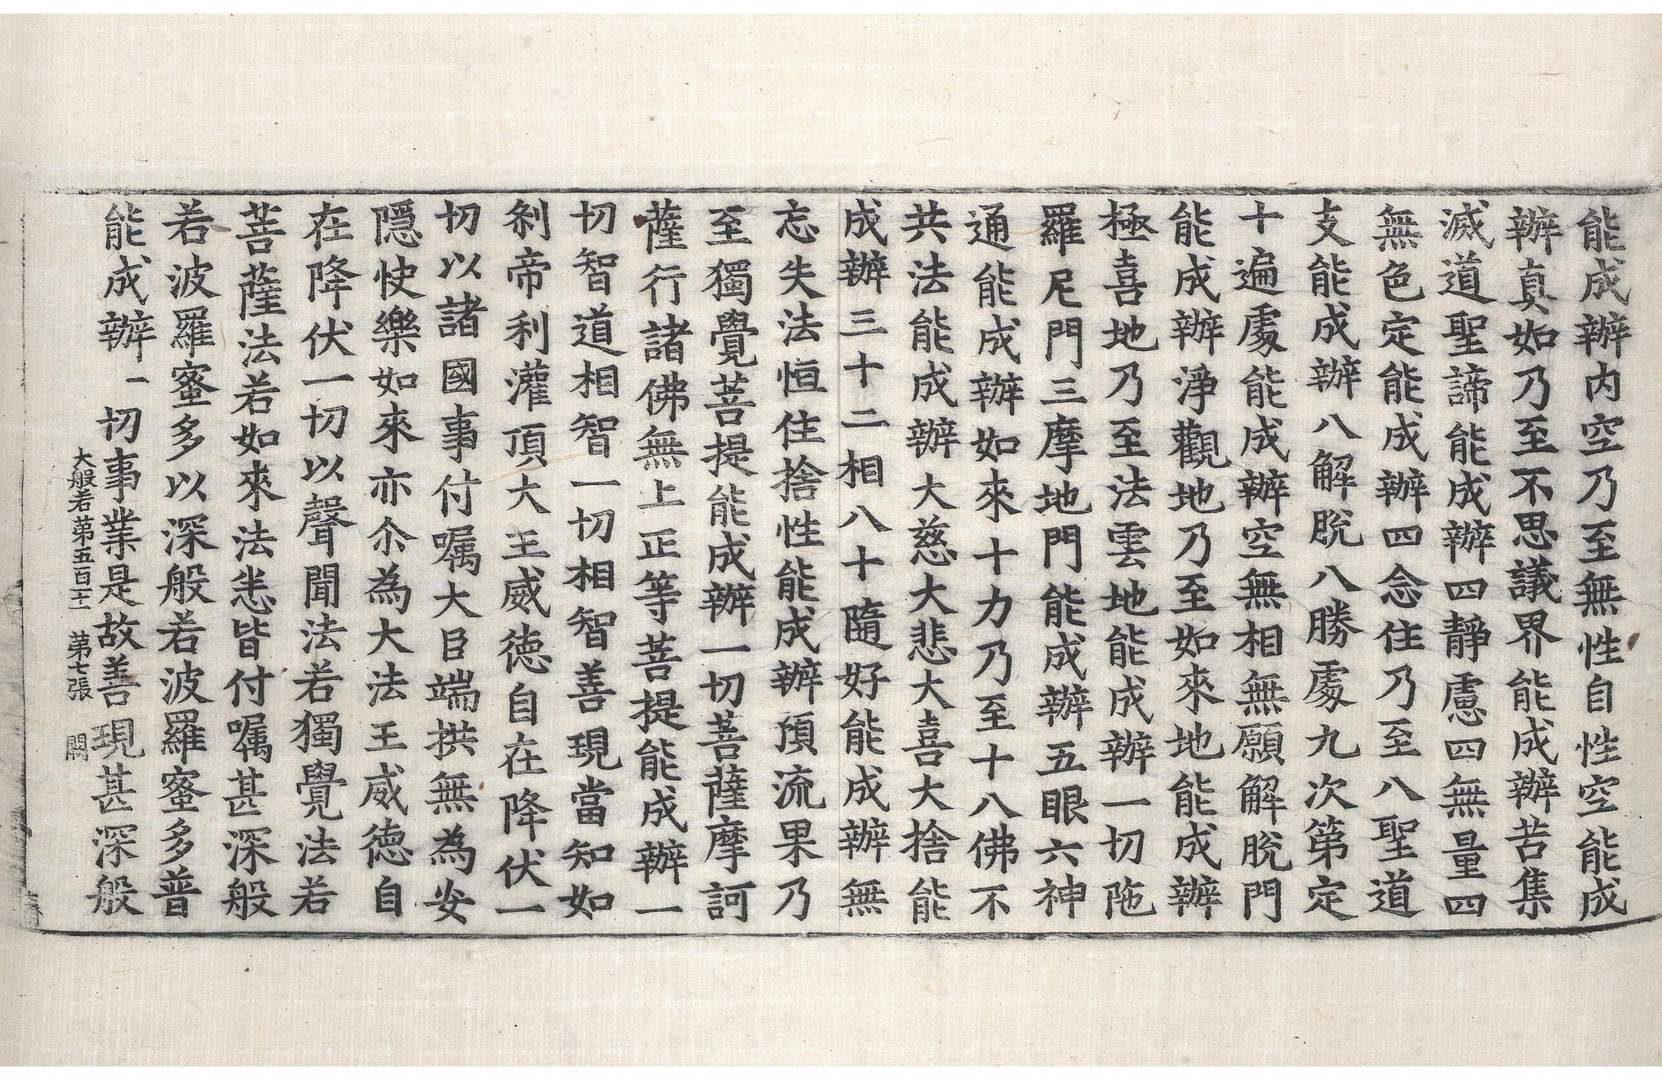 能成辦内空乃至無性自性空能成
辦真如乃至不思議界能成辦苦集
滅道聖諦能成辦四靜慮四無量四
無色定能成辦四念住乃至八聖道
支能成辦八解脫八勝處九次第定
十遍處能成辦空無相無願解脫門
能成辦淨觀地乃至如來地能成辦
極喜地乃至法雲地能成辦一切陁
羅尼門三摩地門能成辦五眼六神
通能成辦如來十力乃至十八佛不
共法能成辦大慈大悲大喜大捨能
成辦三十二相八十隨好能成辦無
忘失法恒住捨性能成辦預流果乃
至獨覺菩提能成辦一切菩薩摩訶
薩行諸佛無上正等菩提能成辦一
切智道相智一切相智善現當知如
刹帝利灌頂大王威德自在降伏一
切以諸國事付嘱大臣端拱無為安
隱快樂如來亦尒為大法王威德自
在降伏一切以聲聞法若獨覺法若
菩薩法若如來法悉皆付嘱甚深般
若波羅蜜多以深般若波羅蜜多普
能成辦一切事業是故善現甚深般
大般若第五百十一 第七張 闕